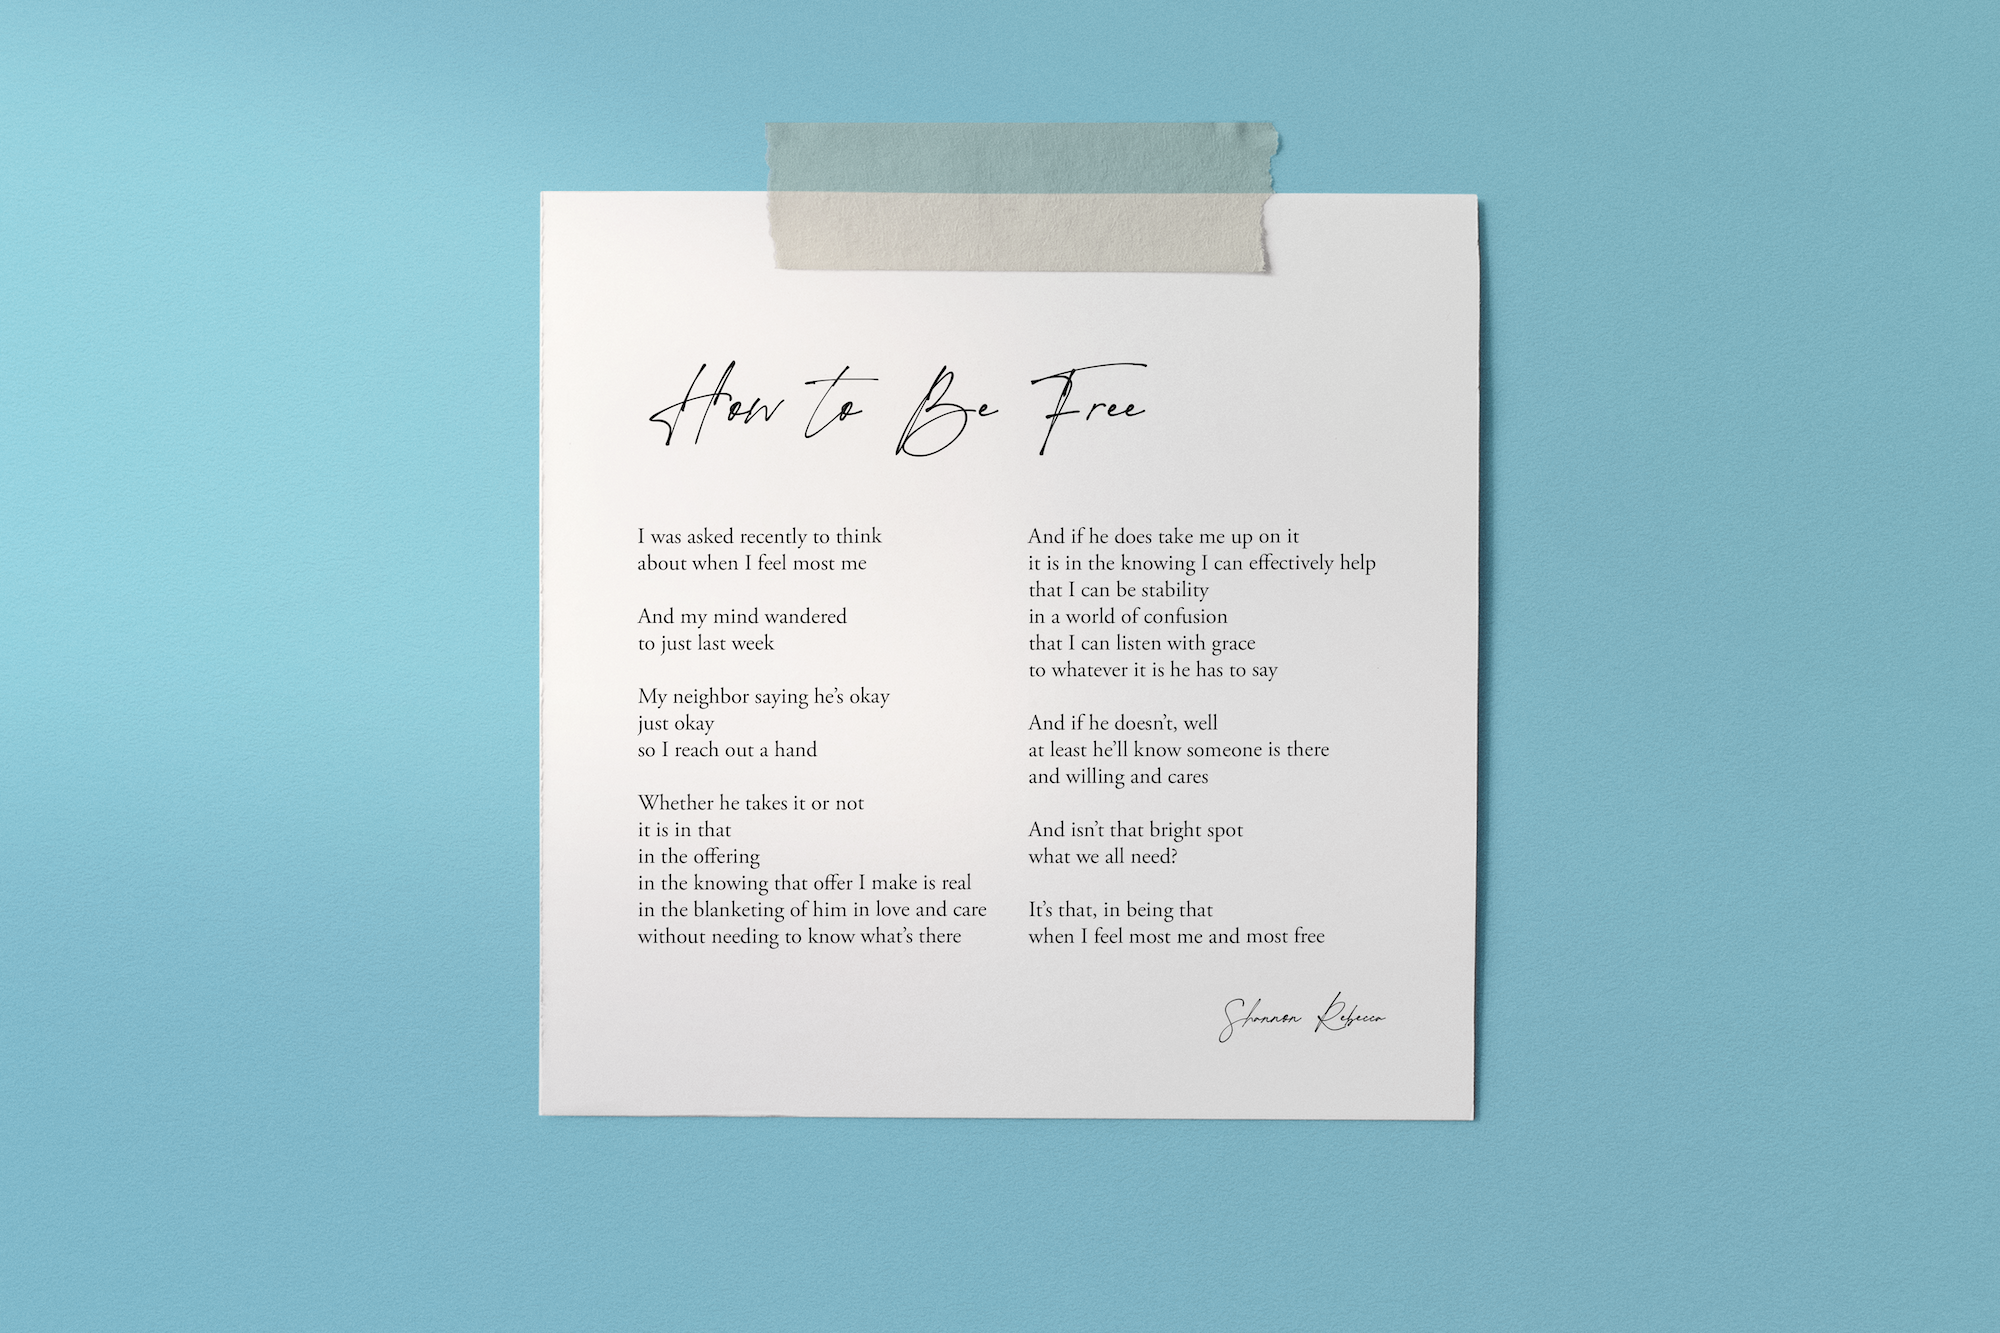 How to Be Free
I was asked recently to think
about when I feel most me
And my mind wandered
to just last week
My neighbor saying he’s okay
just okay
so I reach out a hand
Whether he takes it or not
it is in that
in the offering
in the knowing that offer I make is real
in the blanketing of him in love and care
without needing to know what’s there
And if he does take me up on it
it is in the knowing I can effectively help
that I can be stability
in a world of confusion
that I can listen with grace
to whatever it is he has to say
And if he doesn’t, well
at least he’ll know someone is there
and willing and cares
And isn’t that bright spot
what we all need?
It’s that, in being that
when I feel most me and most free
Shannon Rebecca